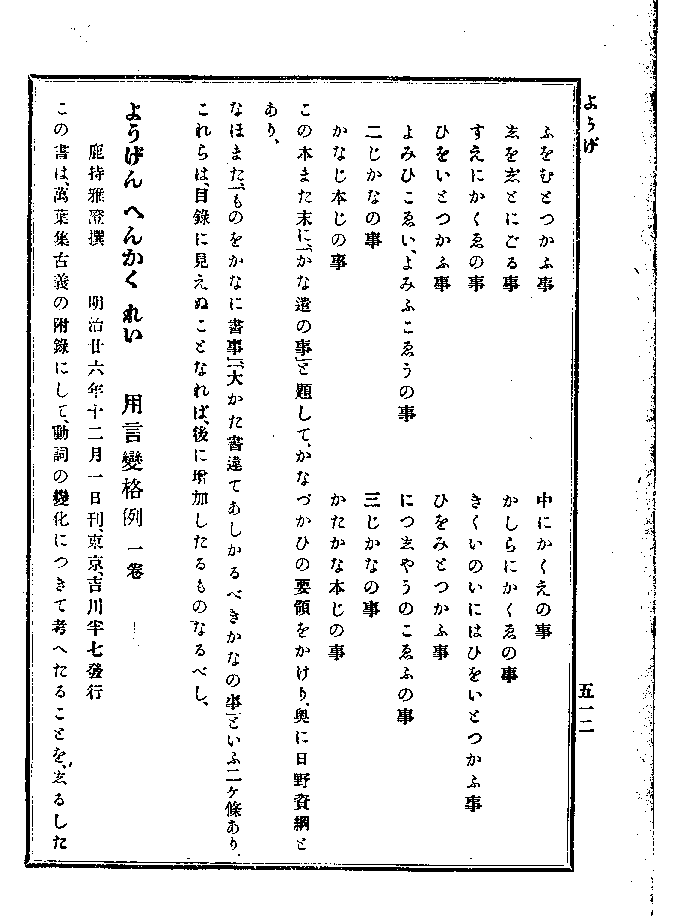 ようげ
五一二
ふをむとつかふ事
中にかくえの事
ゑを志とにごる事
かしらにかくゑの事
すえにかくゑの事
きくいのいにはひをいとつかふ事
ひをいとつかふ事
ひをみとつかふ事
よみひこゑい、よみふこゑうの事
につ志やうのこゑふの事
二じかなの事
三じかなの事
かなじ本じの事
かたかな本じの事
この本また末に、「かな遣の事」と題して、かなづかひの要領をかけり、奥に日野資綱と
あり、
なほまた、「ものをかなに書事」、「大かた書違てあしかるべきかなの事」といふ二ケ條あり、
これらは、目錄に見えぬことなれば、後に增加したるものなるべし、
ようげん へんかく れい 用言變格例 一卷
鹿持雅澄撰 明治廿六年十二月一日刊、東京、吉川半七發行
この書は、萬葉集古義の附錄にして、動詞の變化につきて考へたることを、志るした